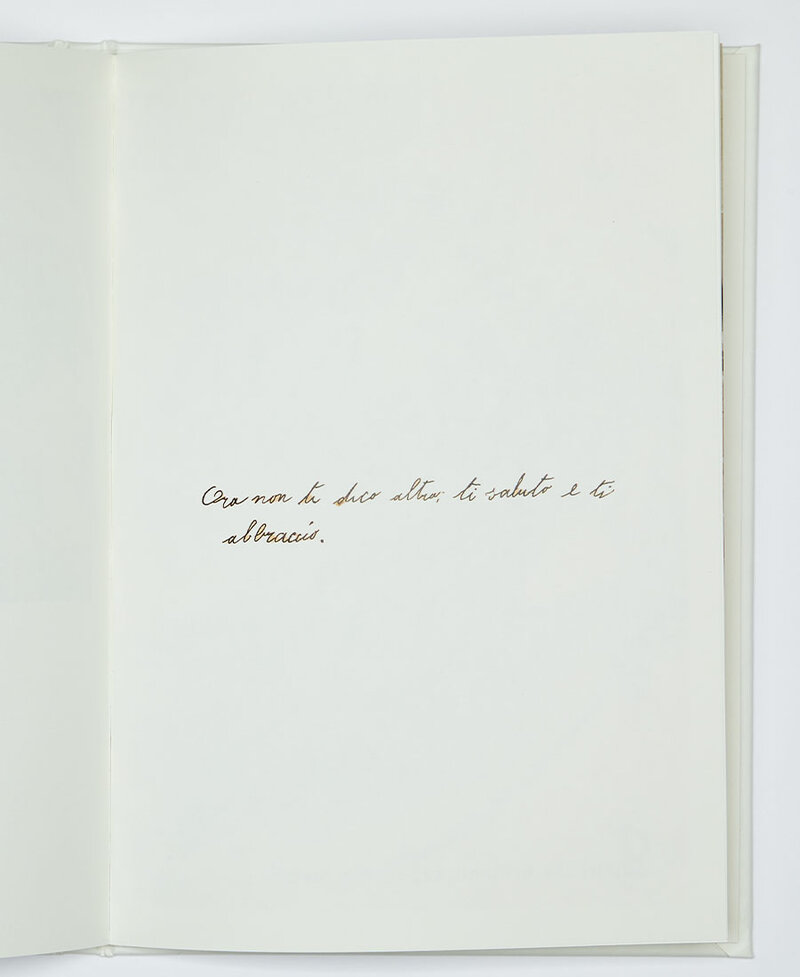 Ora non ti dico altro; ti saluto e ti
abbraccio.